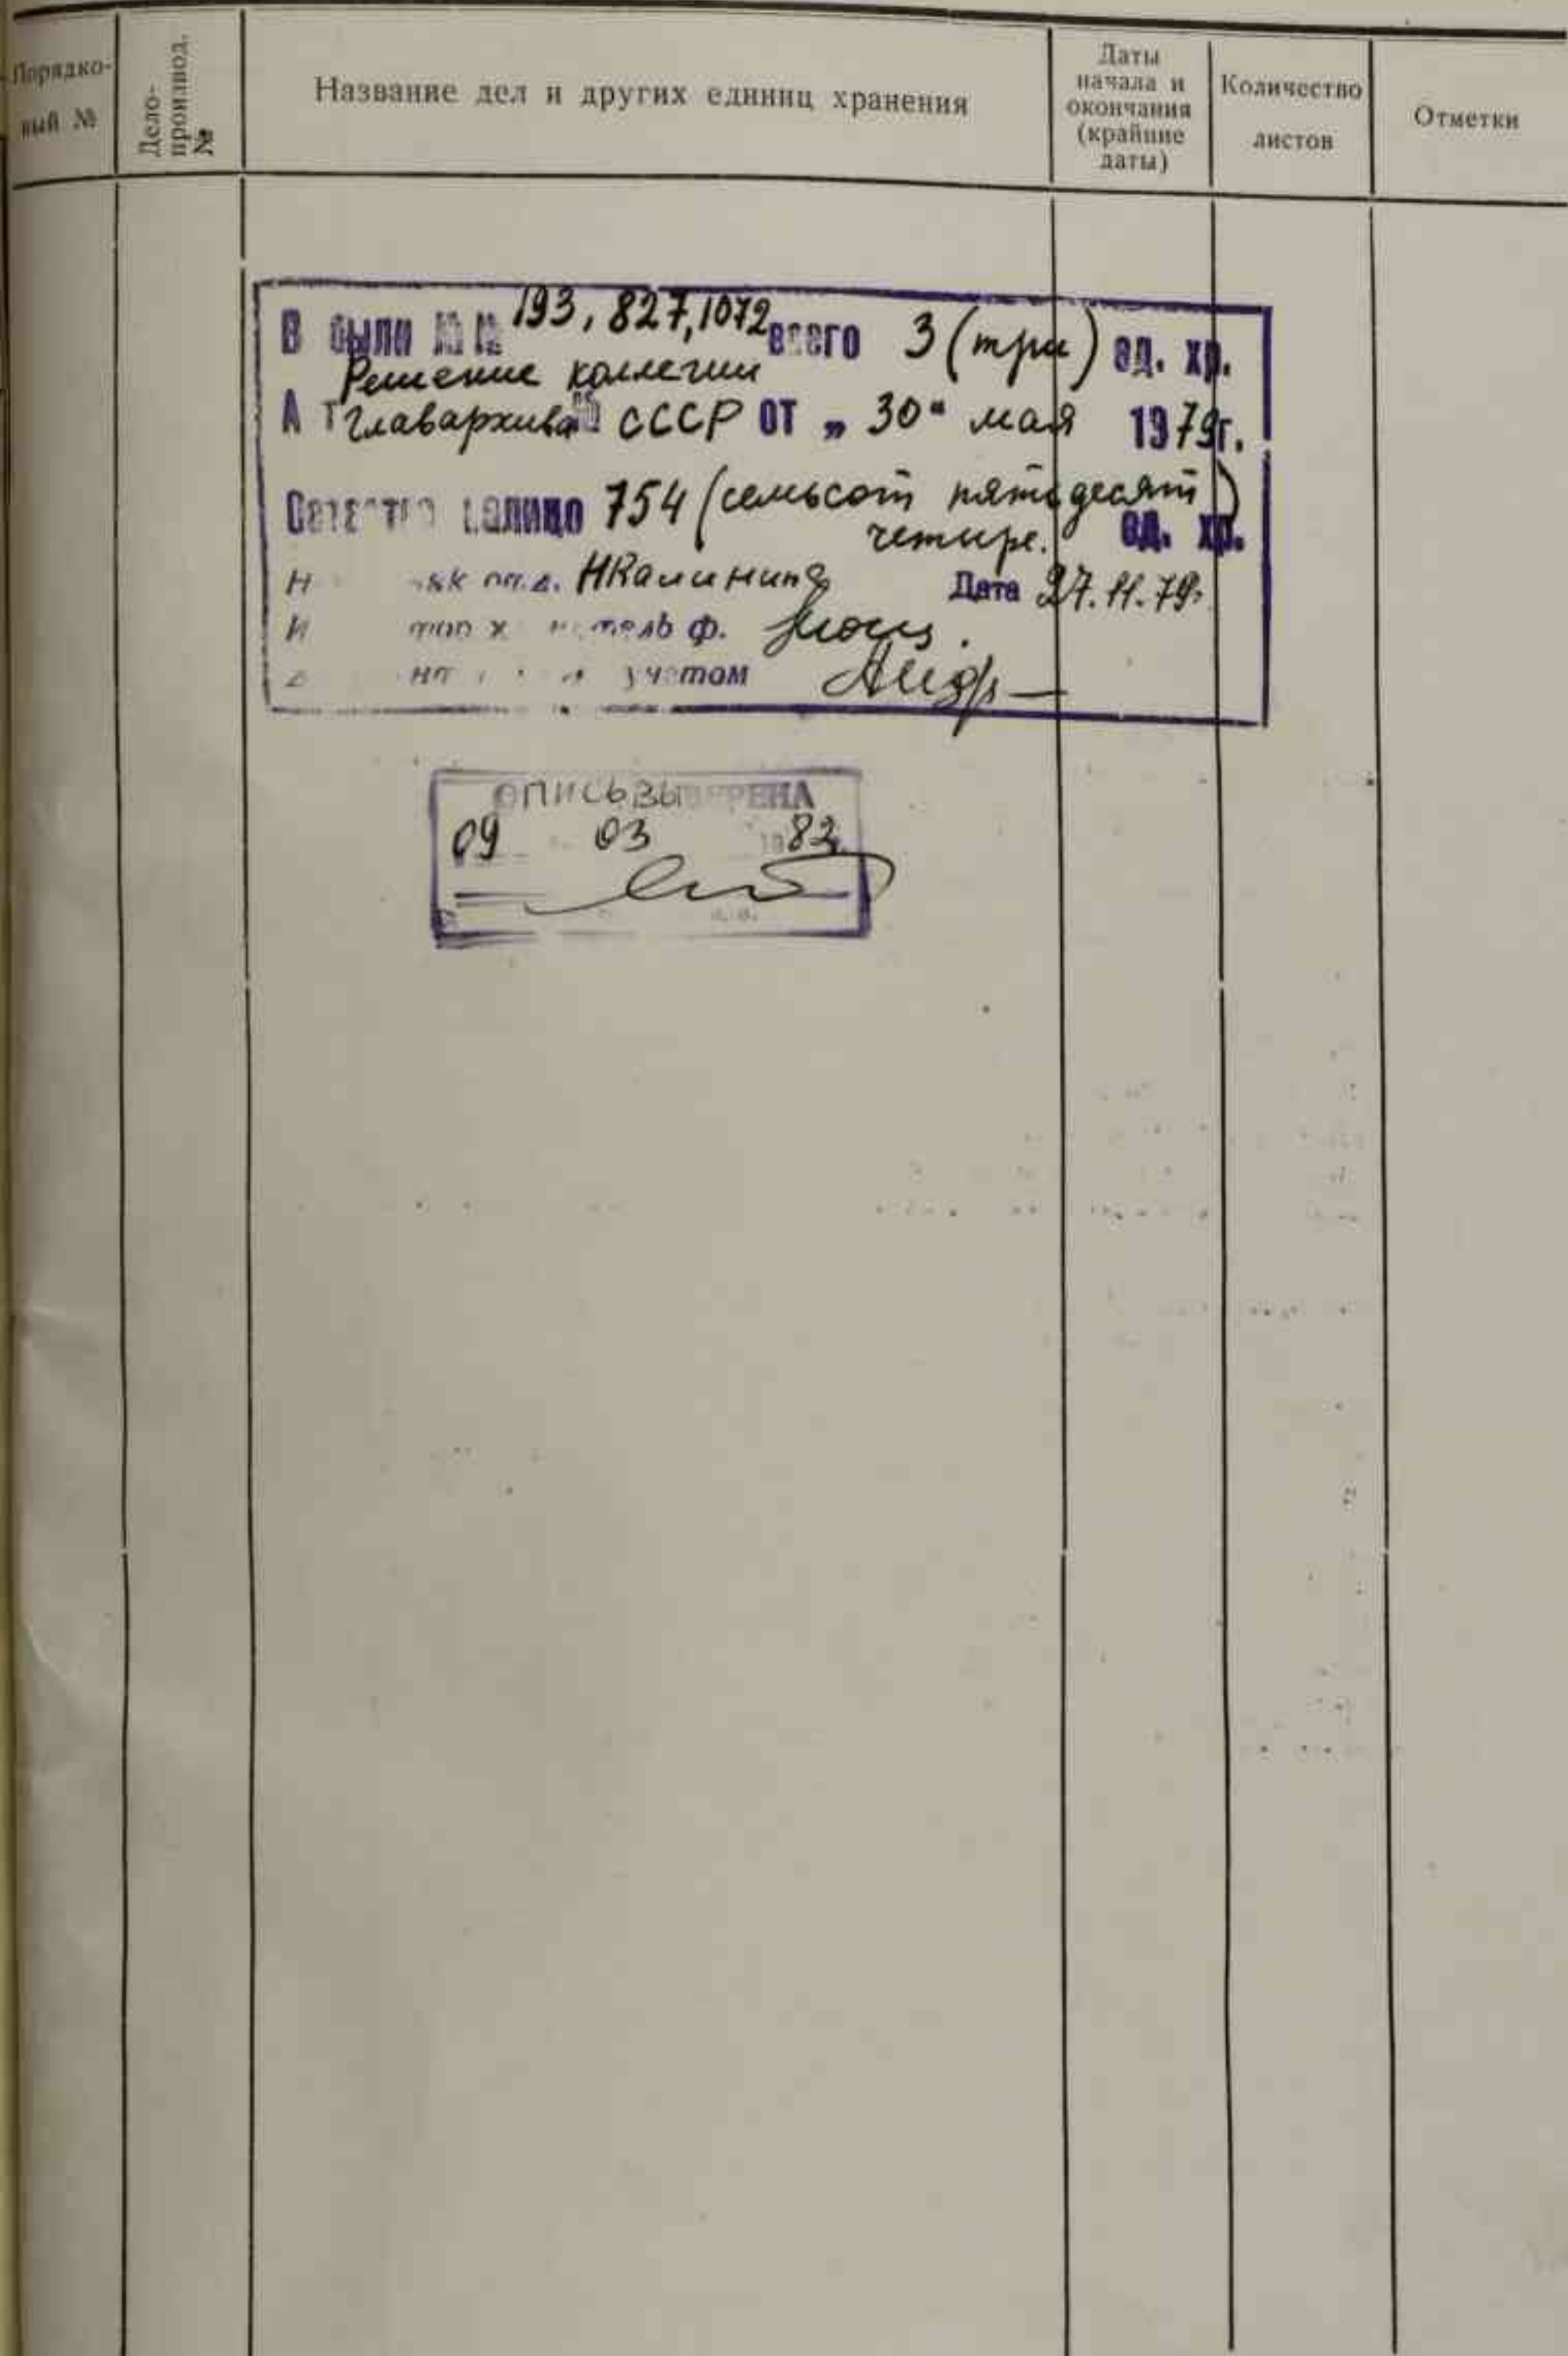 Порядко-
вый №
Дело-
производ.
№
Название дел и других единиц хранения
Даты
начала и
окончания
(крайние
даты)
Количество
листов
Отметки
193, 827, 1072 всего 3 (три) ед. хр.
Решение коллегии
Главархива СССР от „ 30 “ мая 1979г.
налицо 754 (семьсот пятьдесят)
четыре. ед. хр.
НКалинина Дата 27.11.79.
ф.
учетом
ОПИСЬ ВЫВЕРЕНА
09 03 1982